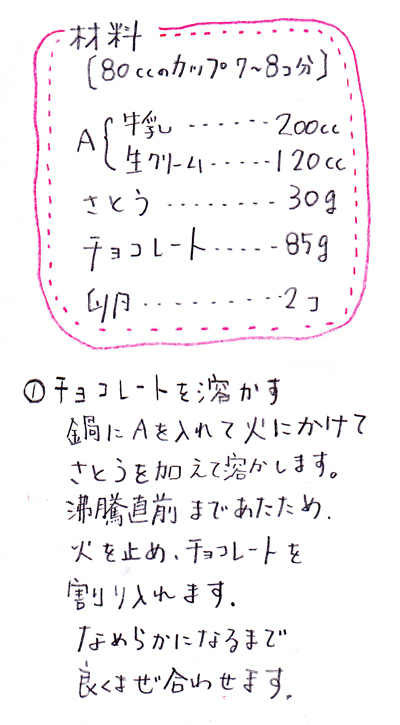 材料
〔80ccのカップ7〜8コ分〕
A{牛乳・・・・・・200cc
生クリーム・・・・・120cc
さとう・・・・・・・・30g
チョコレート・・・・・85g
卵・・・・・・・・・2コ
①チョコレートを溶かす
鍋にAを入れて火にかけて
さとうを加えて溶かします。
沸騰直前まであたため、
火を止め、チョコレートを
割り入れます。
なめらかになるまで
良くまぜ合わせます。